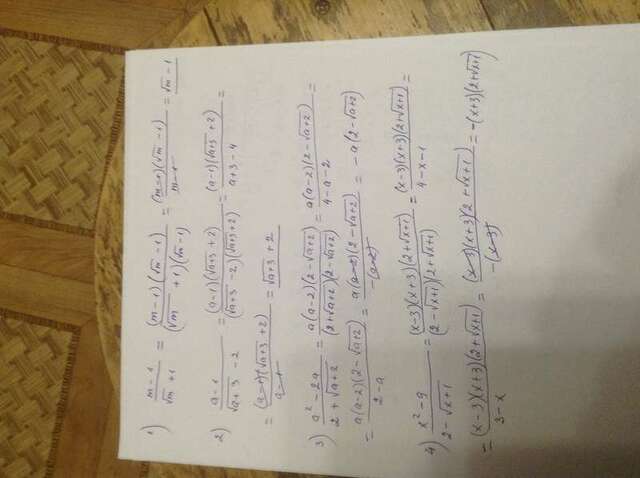 1) (m-1)/(√m +1) = ((m-1)(√m -1))/((√m +1)(√m-1)) = ((m-1)(√m -1))/(m-1) = √m -1
2) (a-1)/(√(a+3) -2) = ((a-1)(√(a+3) +2))/((√(a+3) -2)(√(a+3) +2)) = ((a-1)(√(a+3) +2))/(a+3-4) =
= ((a-1)(√(a+3) +2))/(a-1) = √(a+3) +2
3) (a²-2a)/(2+√(a+2)) = (a(a-2)(2-√(a+2)))/((2+√(a+2))(2-√(a+2))) = (a(a-2)(2-√(a+2)))/(4-a-2) =
= (a(a-2)(2-√(a+2)))/(2-a) = (a(a-2)(2-√(a+2)))/(-(a-2)) = -a(2-√(a+2))
4) (x²-9)/(2-√(x+1)) = ((x-3)(x+3)(2+√(x+1)))/((2-√(x+1))(2+√(x+1))) = ((x-3)(x+3)(2+√(x+1)))/(4-x-1) =
= ((x-3)(x+3)(2+√(x+1)))/(3-x) = ((x-3)(x+3)(2+√(x+1)))/(-(x-3)) = -(x+3)(2+√(x+1))